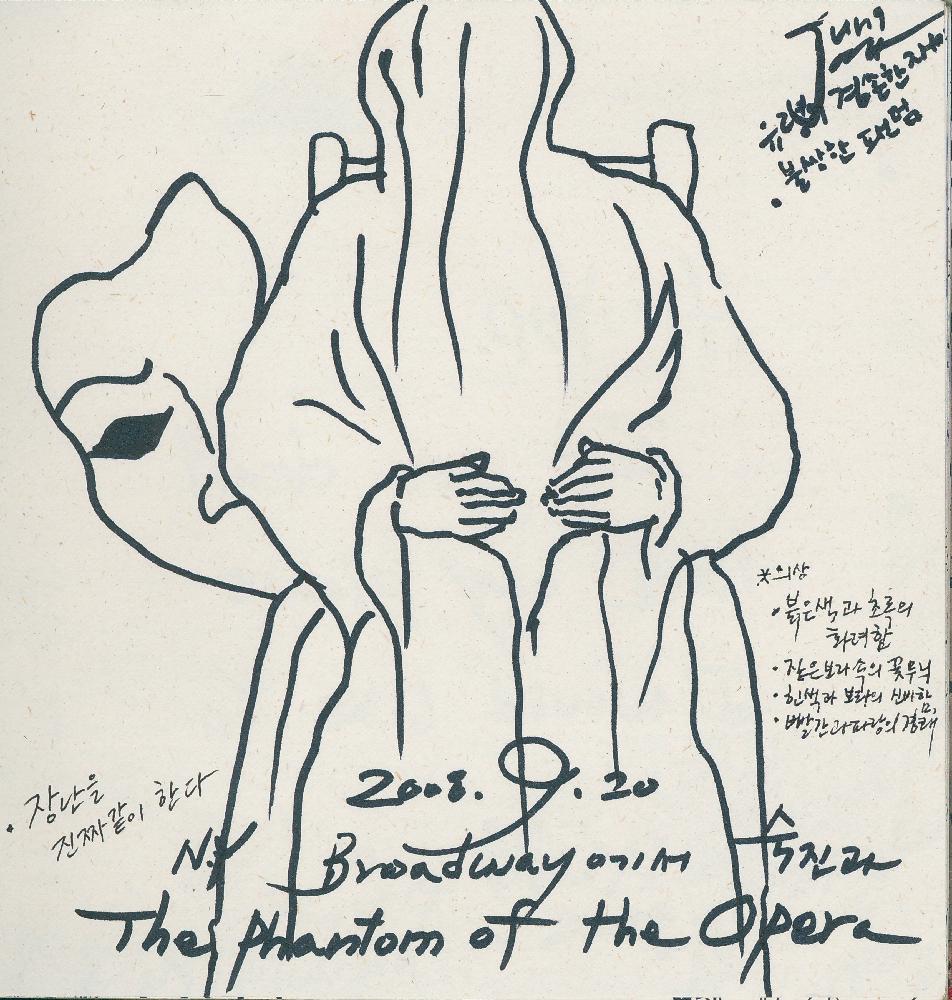 Jung
유령의 겸손한 자세
불쌍한 팬텀
*의상
· 붉은색과 초록의
화려함
· 짙은 보라 속의 꽃무늬
· 흰색과 보라의 신비함,
· 빨간과 파랑의 경쾌
· 장난을
진짜같이 한다
2008. 9. 20
N.Y Broadway 에서 숙진과
The Phantom of the Opera